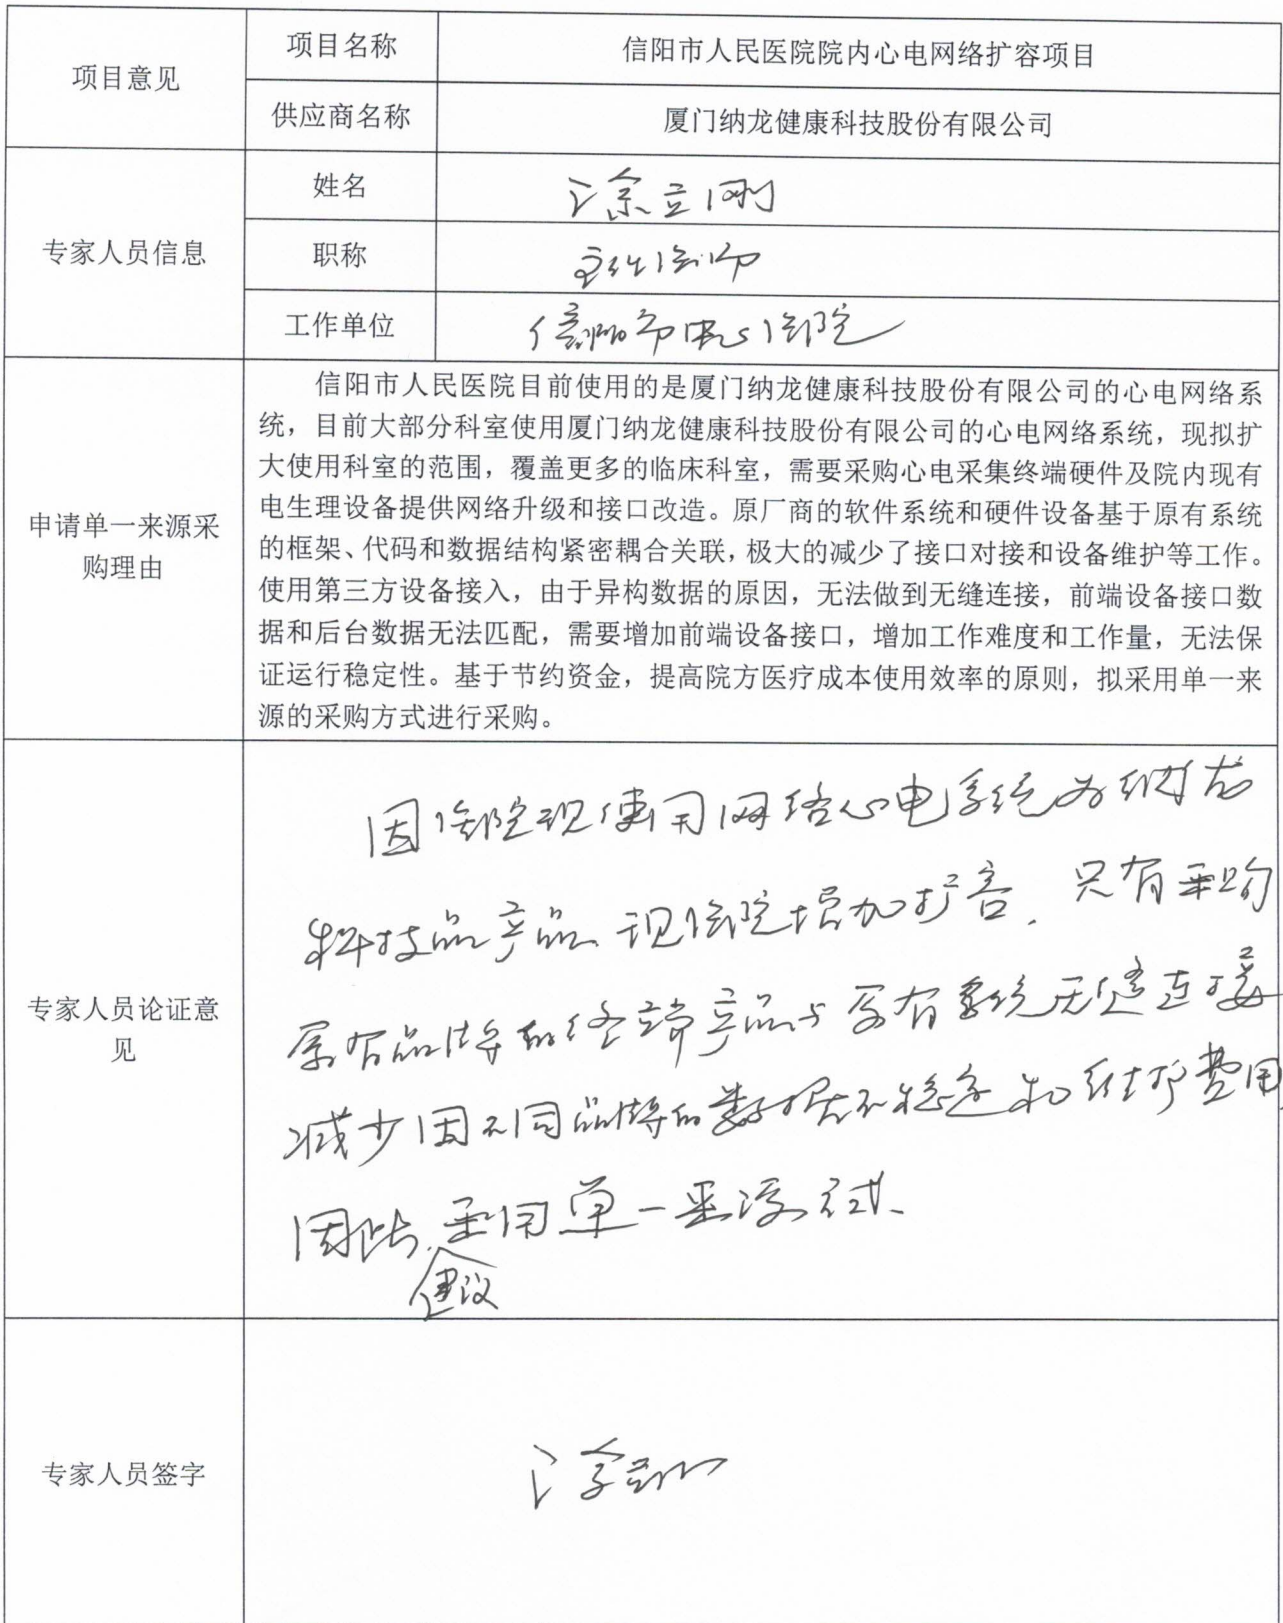 项目意见
项目名称
信阳市人民医院院内心电网络扩容项目
供应商名称
厦门纳龙健康科技股份有限公司
专家人员信息
姓名
涂立刚
职称
主任医师
工作单位
信阳市中心医院
申请单一来源采
购理由
信阳市人民医院目前使用的是厦门纳龙健康科技股份有限公司的心电网络系
统，目前大部分科室使用厦门纳龙健康科技股份有限公司的心电网络系统，现拟扩
大使用科室的范围，覆盖更多的临床科室，需要采购心电采集终端硬件及院内现有
电生理设备提供网络升级和接口改造。原厂商的软件系统和硬件设备基于原有系统
的框架、代码和数据结构紧密耦合关联，极大的减少了接口对接和设备维护等工作。
使用第三方设备接入，由于异构数据的原因，无法做到无缝连接，前端设备接口数
据和后台数据无法匹配，需要增加前端设备接口，增加工作难度和工作量，无法保
证运行稳定性。基于节约资金，提高院方医疗成本使用效率的原则，拟采用单一来
源的采购方式进行采购。
专家人员论证意
见
因医院现使用网络心电系统为纳龙
科技品产品、现医院增加扩容，只有采购
原有品牌的终端产品与原有系统无缝连接
减少因不同品牌的数据不稳定和维护费用，
因此，采用单一来源方式、
建议
专家人员签字
涂立刚